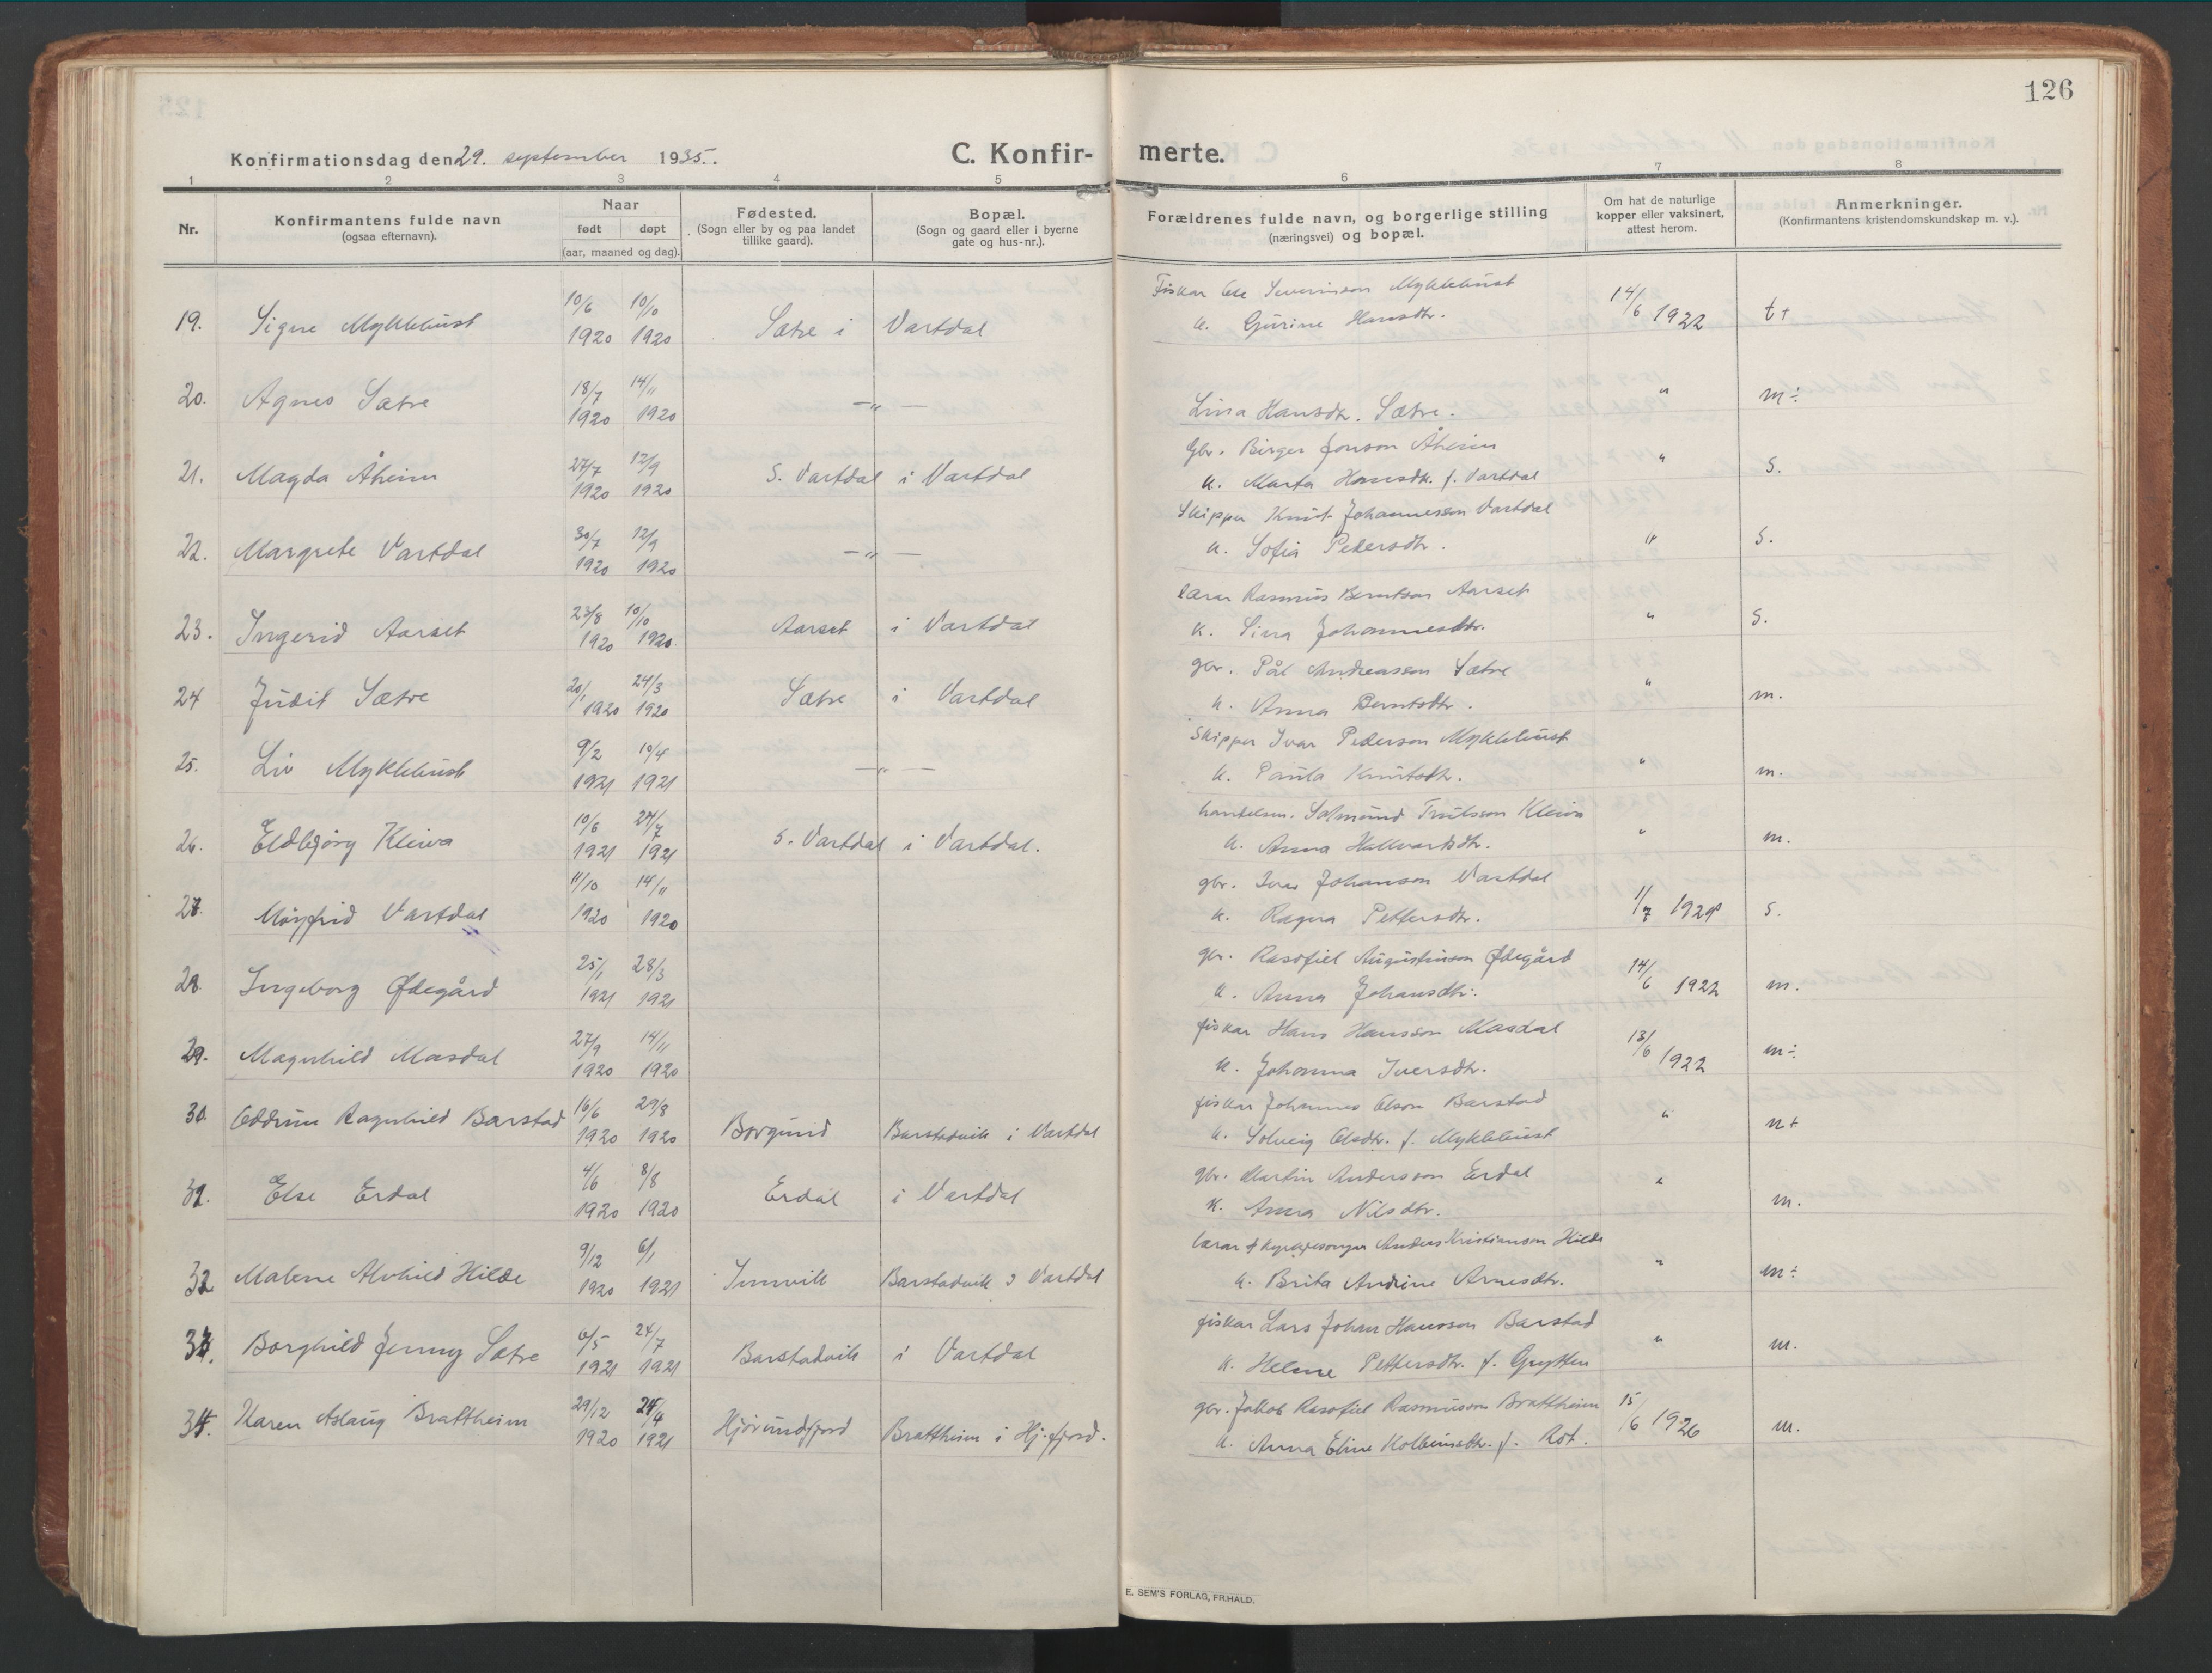 126
Konfirmationsdag den 29. september 1935.
C. Konfir- merte.
1 2 3 4 5 6 7 8
Nr.
Konfirmantens fulde navn
(ogsaa efternavn).
Naar
født døpt
(aar, maaned og dag).
Fødested.
(Sogn eller by og paa landet
tillike gaard).
Bopæl.
(Sogn og gaard eller i byerne
gate og hus-nr.).
Forældrenes fulde navn, og borgerlige stilling
(næringsvei) og bopæl.
Om hat de naturlige
kopper eller vaksinert,
attest herom.
Anmerkninger.
(Konfirmantens kristendomskundskap m. v.).
10/6 10/10 Fiskar Ole Severinson Myklebust 14/6 1922
19. Signe Myklebust 1920 1920 Sætre i Vartdal k. Gurine Hansdtr. t+
18/7 14/11
20. Agnes Sætre 1920 1920 —"— Lina Hansdtr. Sætre. " m÷
27/7 12/9 Gbr. Birger Jonson Åheim
21. Magda Åheim 1920 1920 S. Vartdal i Vartdal k. Marta Hansdtr. f. Vartdal " s.
30/7 12/9 Skipper Knut Johannesson Vartdal
22. Margrete Vartdal 1920 1920 —"— k. Sofia Pedersdtr. " s.
23/8 10/10 lærar Rasmus Berntson Aarset
23. Ingerid Aarset 1920 1920 Aarset i Vartdal k. Sina Johannesdtr. " s.
20/1 24/3 gbr. Pål Andreasson Sætre
24 Judit Sætre 1920 1920 Sætre i Vartdal k. Anna Berntsdtr. " m.
9/2 10/4 Skipper Ivar Pederson Myklebust
25. Liv Myklebust 1921 1921 —"— k. Paula Knutsdtr. " m.
10/6 24/7 handelsm. Salmund Trulsson Kleiva
26. Eldbjørg Kleiva 1921 1921 S. Vartdal i Vartdal. k. Anna Hallvartsdtr. " m.
11/10 14/11 gbr. Ivar Johanson Vartdal
27. Møyfrid Vartdal 1920 1920 k. Ragna Pettersdtr. 1/7 s.
25/1 28/3 gbr. Rasofiel Augustinson Ødegård
28. Ingeborg Ødegård 1921 1921 k. Anna Johansdtr. 14/6 1922 m.
27/9 14/11 fiskar Hans Hansson Masdal
29. Magnhild Masdal 1920 1920 k. Johanna Iversdtr. 13/6 1922 m÷
16/6 29/8 fiskar Johannes Olson Barstad
30. Oddrun Ragnhild Barstad 1920 1920 Borgund Barstadvik i Vartdal k. Solveig Olsdtr. f. Myklebust " n+
4/6 8/8 gbr. Martin Andersson Erdal
31. Else Erdal 1920 1920 Erdal i Vartdal k. Anna Nilsdtr. " m.
9/12 6/1 lærar & kyrkjesongar Anders Kristianson Hilde
32 Malene Alvhild Hilde 1920 1921 Innvik Barstadvik i Vartdal k. Brita Andrine Arnesdtr. " m÷
6/5 24/7 fiskar Lars Johan Hansson Barstad
33. Borghild Jenny Sætre 1921 1921 Barstadvik i Vartdal k. Helene Pettersdtr. f. Grytten " m.
29/12 24/4 gbr. Jakob Rasofiel Rasmusson Brattheim 15/6 1926
34. Karen Aslaug Brattheim 1920 1921 Hjørundfjord Brattheim i Hj.fjord. k. Anna Eline Kolbeinsdtr. f. Rot. m.
E. SEM'S FORLAG, FR.HALD.